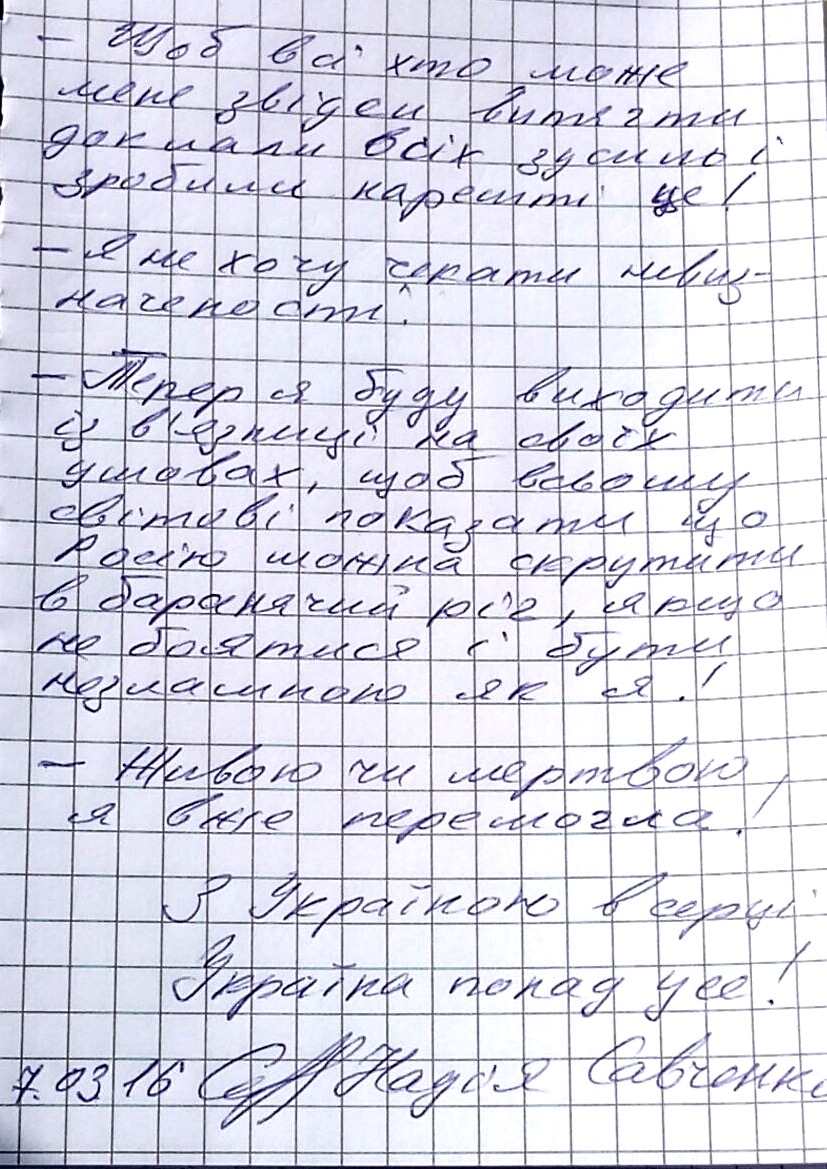 - Щоб всі хто може
мене звідси витягти
доклали всіх зусиль і
зробили нарешті це!
- Я не хочу чекати невиз-
наченості.
- Тепер я буду виходити
із в'язниці на своїх
умовах, щоб всьому
світові показати що
Росію можна скрутити
в баранячий ріг, якщо
не боятися і бути
незламною як я!
- Живою чи мертвою,
я вже перемогла!
З Україною в серці
Україна понад усе!
7.03 16 Надія Савченко